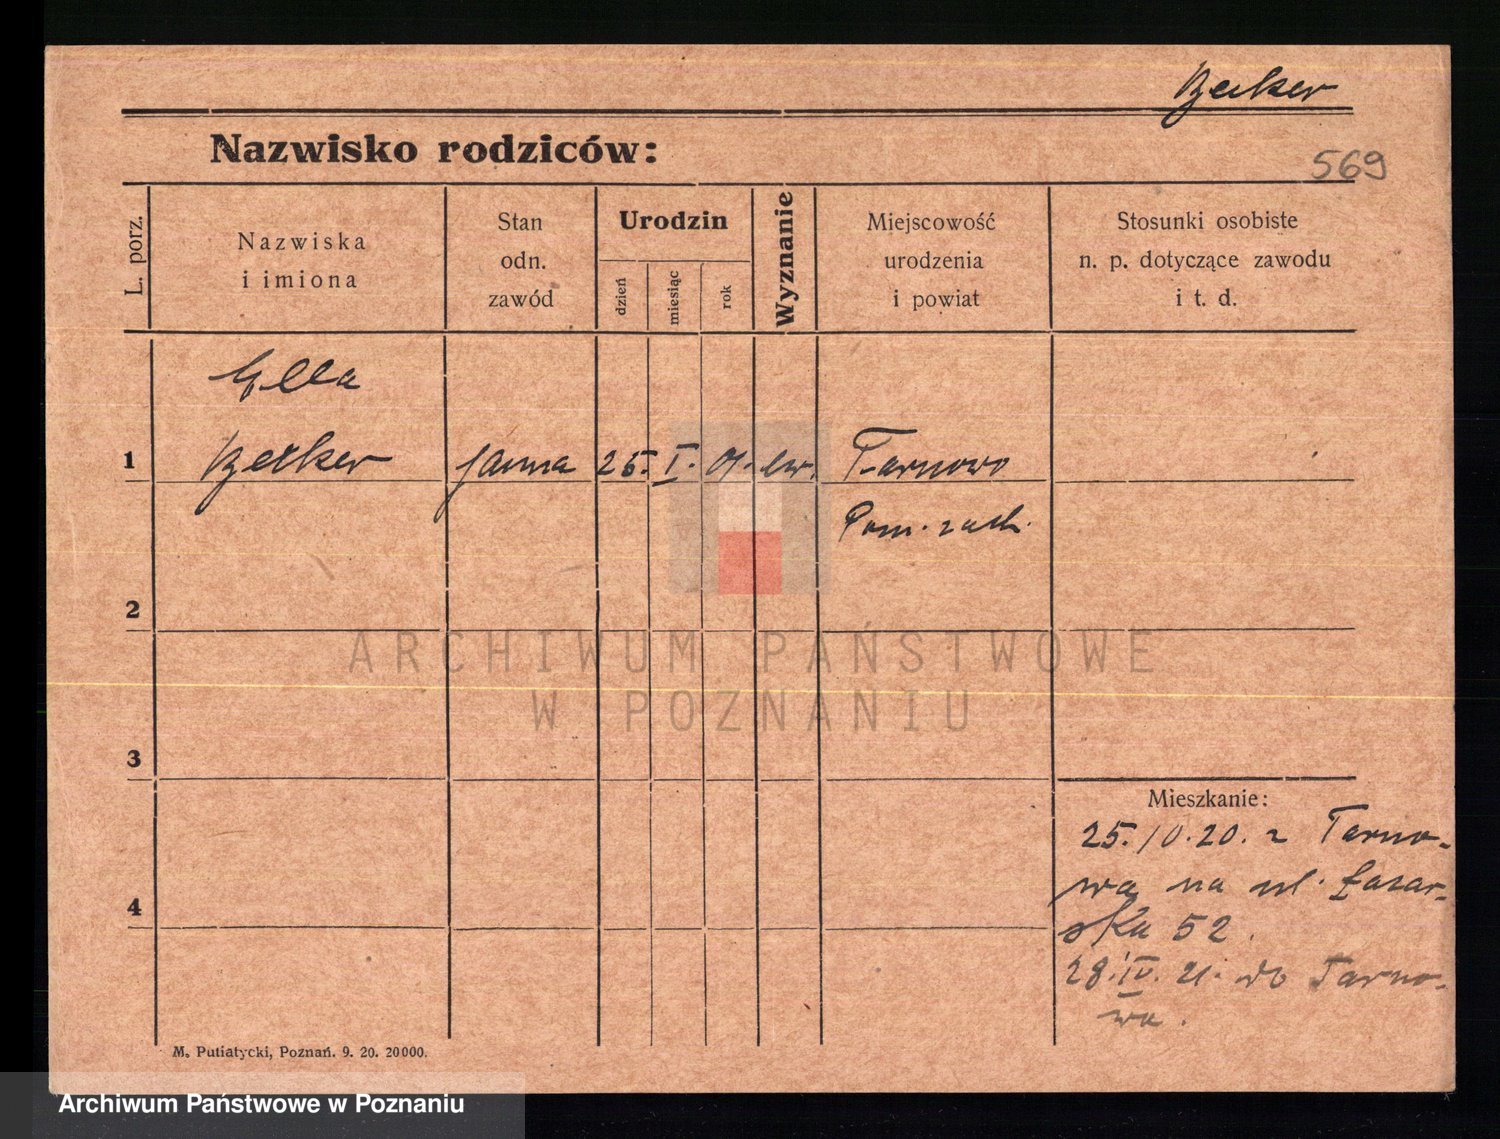 Becker
Nazwisko rodziców:
569
L. porz.
Nazwiska
i imiona
Stan
odn.
zawód
Urodzin
dzień
miesiąc
rok
Wyznanie
Miejscowość
urodzenia
i powiat
Stosunki osobiste
n. p. dotyczące zawodu
i t. d.
Ella
1 Becker panna 25. I. 01. ew. Tarnowo
Pom. zach.
2
ARCHIWUM PAŃSTWOWE
W POZNANIU
3
Mieszkanie:
25.10.20. z Tarno-
wa na ul. Łazar-
4
ska 52.
28.IV.21. do Tarno-
wa.
M. Putiatycki, Poznań. 9. 20. 20000.
Archiwum Państwowe w Poznaniu